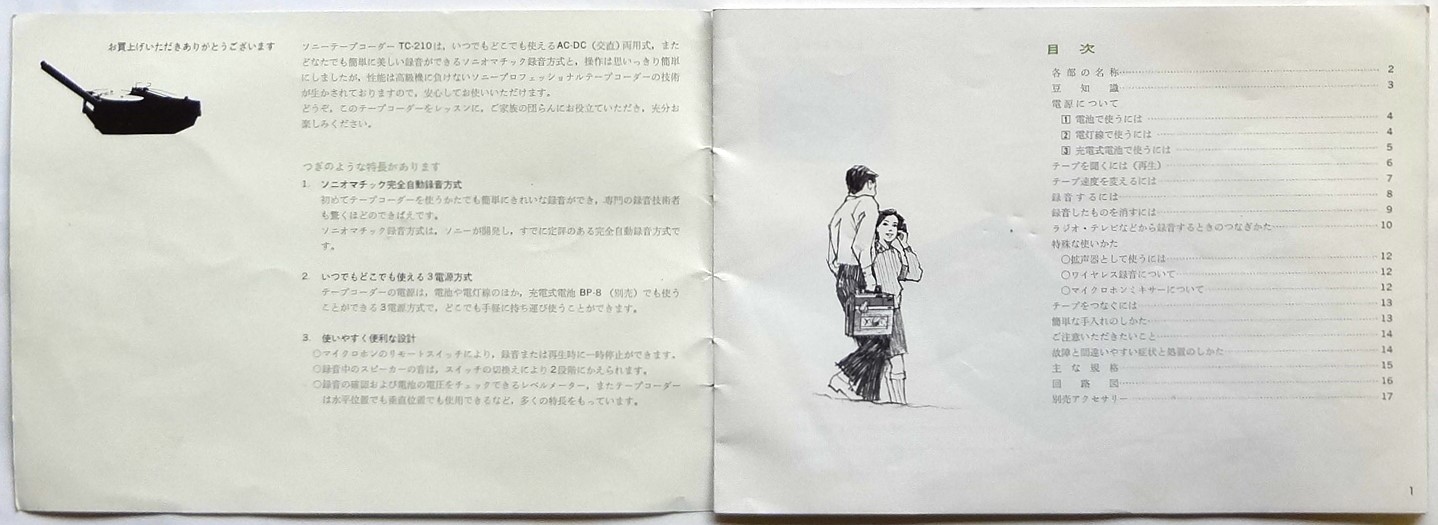 お買上げいただきありがとうございます
ソニーテープコーダー TC-210は，いつでもどこでも使えるAC-DC（交直）両用式，また
どなたでも簡単に美しい録音ができるソニオマチック録音方式と，操作は思いっきり簡単
にしましたが，性能は高級機に負けないソニープロフェッショナルテープコーダーの技術
が生かされておりますので，安心してお使いいただけます。
どうぞ，このテープコーダーをレッスンに，ご家族の団らんにお役立ていただき，充分お
楽しみください。
つぎのような特長があります
1. ソニオマチック完全自動録音方式
初めてテープコーダーを使うかたでも簡単にきれいな録音ができ，専門の録音技術者
も驚くほどのできばえです。
ソニオマチック録音方式は，ソニーが開発し，すでに定評のある完全自動録音方式で
す。
2. いつでもどこでも使える3電源方式
テープコーダーの電源は，電池や電灯線のほか，充電式電池 BP-8 （別売）でも使う
ことができる3電源方式で，どこでも手軽に持ち運び使うことができます。
3. 使いやすく便利な設計
○マイクロホンのリモートスイッチにより，録音または再生時に一時停止ができます。
○録音中のスピーカーの音は，スイッチの切換えにより2段階にかえられます。
○録音の確認および電池の電圧をチェックできるレベルメーター，またテープコーダー
は水平位置でも垂直位置でも使用できるなど，多くの特長をもっています。
目 次
各部の名称 2
豆知識 3
電源について
1 電池で使うには 4
2 電灯線で使うには 4
3 充電式電池で使うには 5
テープを聞くには（再生） 6
テープ速度を変えるには 7
録音するには 8
録音したものを消すには 9
ラジオ・テレビなどから録音するときのつなぎかた 10
特殊な使いかた
○拡声器として使うには 12
○ワイヤレス録音について 12
○マイクロホンミキサーについて 12
テープをつなぐには 13
簡単な手入れのしかた 13
ご注意いただきたいこと 14
故障と間違いやすい症状と処置のしかた 14
主な規格 15
回路図 16
別売アクセサリー 17
1